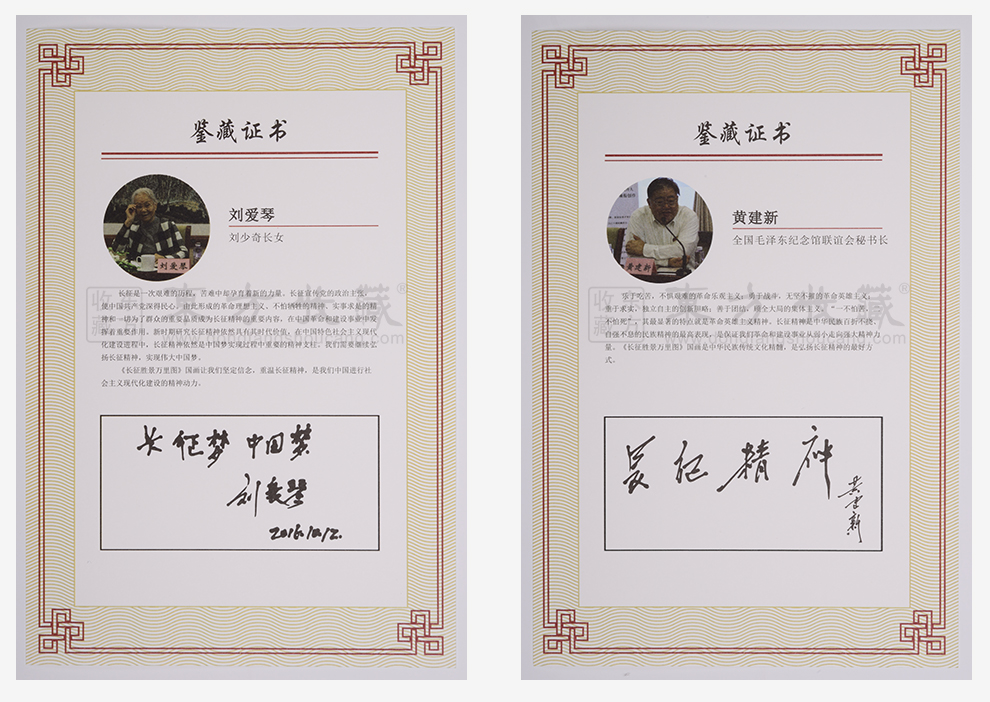 鉴藏证书
刘爱琴
刘少奇长女
刘爱琴
长征是一次艰难的历程，苦难中却孕育着新的力量。长征宣传党的政治主张，
使中国共产党深得民心。由此形成的革命理想主义、不怕牺牲的精神、实事求是的精
神和一切为了群众的重要品质成为长征精神的重要内容，在中国革命和建设事业中发
挥着重要作用。新时期研究长征精神依然具有其时代价值，在中国特色社会主义现代
化建设进程中，长征精神依然是中国梦实现过程中重要的精神支柱，我们需要继续弘
扬长征精神，实现伟大中国梦。
《长征胜景万里图》国画让我们坚定信念，重温长征精神，是我们中国进行社
会主义现代化建设的精神动力。
长征梦 中国梦
刘爱琴
2016.10.12.
鉴藏证书
黄建新
全国毛泽东纪念馆联谊会秘书长
黄建新
乐于吃苦，不惧艰难的革命乐观主义；勇于战斗，无坚不摧的革命英雄主义；
重于求实，独立自主的创新胆略；善于团结，顾全大局的集体主义。“一不怕苦，二
不怕死”，其最显著的特点就是革命英雄主义精神。长征精神是中华民族百折不挠，
自强不息的民族精神的最高表现，是保证我们革命和建设事业从弱小走向强大精神力
量。《长征胜景万里图》国画是中华民族传统文化精髓，是弘扬长征精神的最好方
式。
長征精神
黄建新